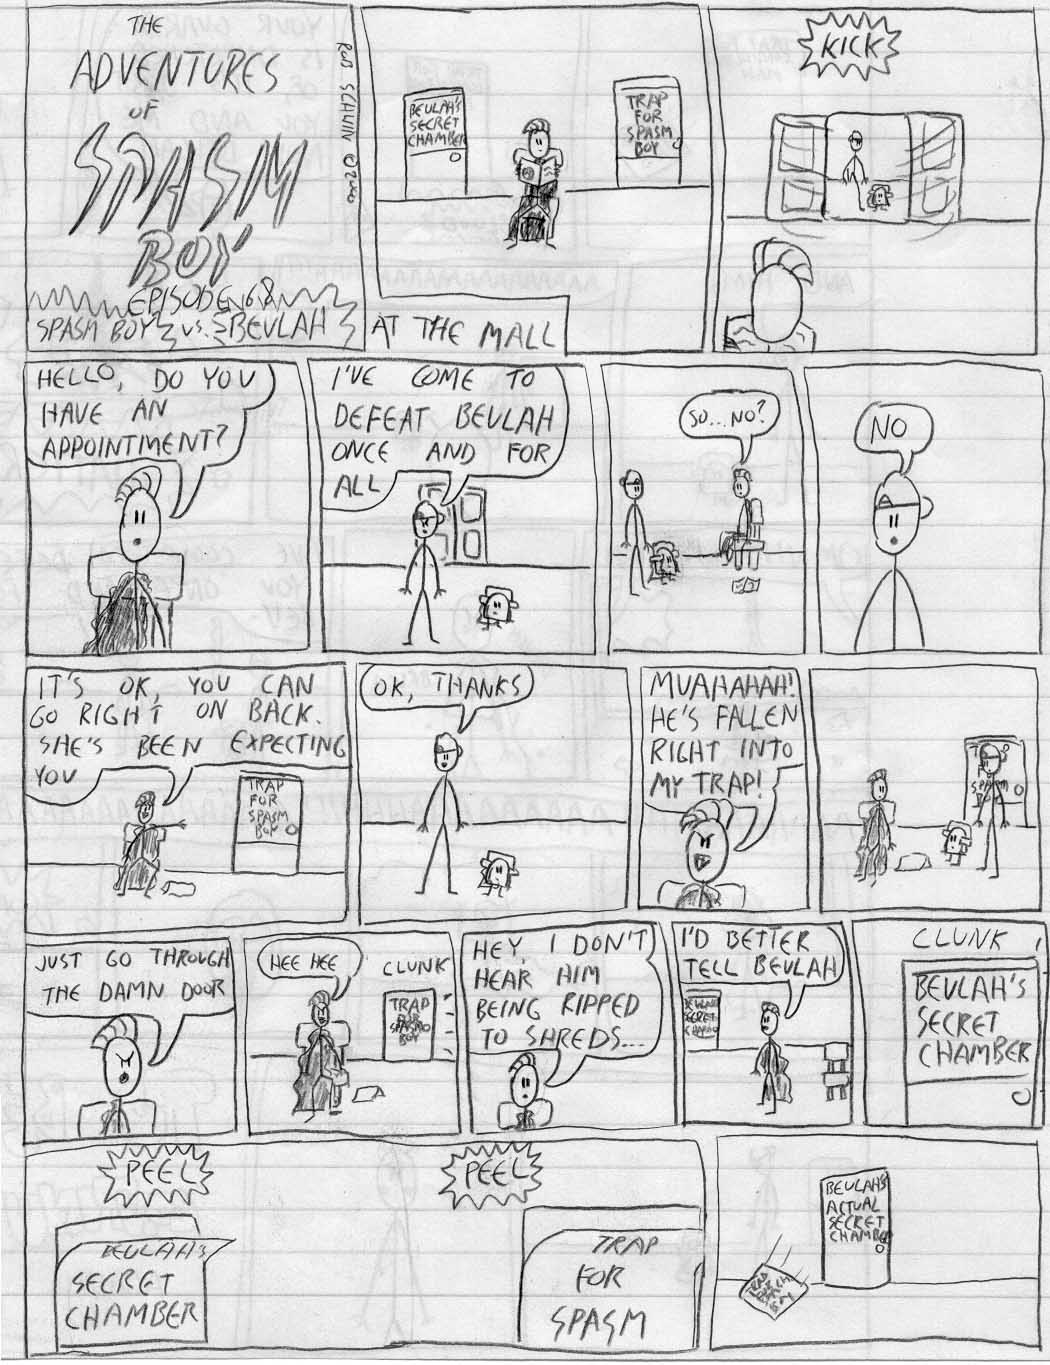 THE
ADVENTURES
OF
SPASM
BOY
EPISODE 68
SPASM BOY vs. BEULAH
ROB SCHWIN ©2000
BEULAH'S
SECRET
CHAMBER
TRAP
FOR
SPASM
BOY
AT THE MALL
KICK
HELLO, DO YOU
HAVE AN
APPOINTMENT?
I'VE COME TO
DEFEAT BEULAH
ONCE AND FOR
ALL
SO...NO?
NO
IT'S OK, YOU CAN
GO RIGHT ON BACK.
SHE'S BEEN EXPECTING
YOU
TRAP
FOR
SPASM
BOY
OK, THANKS
MUAHAHAH!
HE'S FALLEN
RIGHT INTO
MY TRAP!
JUST GO THROUGH
THE DAMN DOOR
HEE HEE
CLUNK
TRAP
FOR
SPASM
BOY
HEY, I DON'T
HEAR HIM
BEING RIPPED
TO SHREDS...
I'D BETTER
TELL BEULAH
BEULAH'S
SECRET
CHAMBER
CLUNK
BEULAH'S
SECRET
CHAMBER
PEEL
BEULAH'S
SECRET
CHAMBER
PEEL
TRAP
FOR
SPASM
BEULAH'S
ACTUAL
SECRET
CHAMBER
TRAP
FOR
BOY